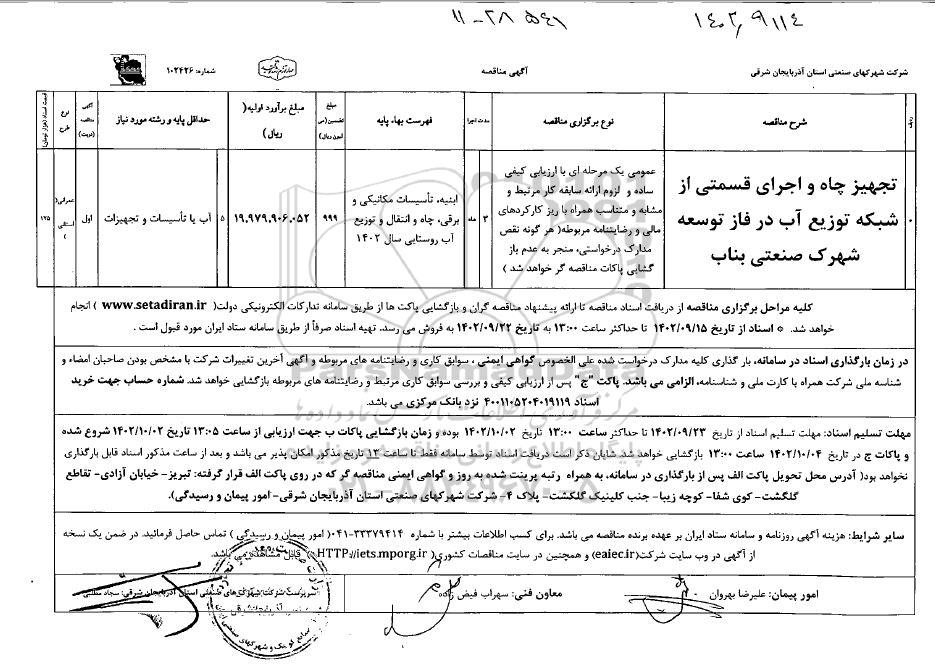 ۱۴۰۲٫۹٫۱۴
۱۱-۲۸ ۵۴۱
شرکت شهرکهای صنعتی استان آذربایجان شرقی
آگهی مناقصه
شماره: ۱۰۲۴۲۶
ردیف
شرح مناقصه
نوع برگزاری مناقصه
مدت اجرا
فهرست بهاء پایه
مبلغ برآورد اولیه( ریال )
حداقل پایه و رشته مورد نیاز
آگهی مناقصه (نوبت)
نوع طرح
تجهیز چاه و اجرای قسمتی از
شبکه توزیع آب در فاز توسعه
شهرک صنعتی بناب
عمومی یک مرحله ای با ارزیابی کیفی
ساده و لزوم ارائه سابقه کار مرتبط و
مشابه و متناسب همراه با ریز کارکردهای
مالی و رضایتنامه مربوطه( هر گونه نقص
مدارک درخواستی، منجر به عدم باز
گشایی پاکات مناقصه گر خواهد شد )
۳ ماه
ابنیه، تأسیسات مکانیکی و
برقی، چاه و انتقال و توزیع
آب روستایی سال ۱۴۰۲
۹۹۹
۱۹,۹۷۹,۹۰۶,۰۵۲
۵
آب یا تأسیسات و تجهیزات
اول
۱۲۵
کلیه مراحل برگزاری مناقصه از دریافت اسناد مناقصه تا ارائه پیشنهاد مناقصه گران و بازگشایی پاکت ها از طریق سامانه تدارکات الکترونیکی دولت( www.setadiran.ir ) انجام
خواهد شد. * اسناد از تاریخ ۱۴۰۲/۰۹/۱۵ تا حداکثر ساعت ۱۳:۰۰ به تاریخ ۱۴۰۲/۰۹/۲۲ به فروش می رسد. تهیه اسناد صرفاً از طریق سامانه ستاد ایران مورد قبول است .
در زمان بارگذاری اسناد در سامانه، بار گذاری کلیه مدارک درخواست شده علی الخصوص گواهی ایمنی ، سوابق کاری و رضایتنامه های مربوطه و آگهی آخرین تغییرات شرکت با مشخص بودن صاحبان امضاء و
شناسه ملی شرکت همراه با کارت ملی و شناسنامه، الزامی می باشد. پاکت "ج" پس از ارزیابی کیفی و بررسی سوابق کاری مرتبط و رضایتنامه های مربوطه بازگشایی خواهد شد. شماره حساب جهت خرید
اسناد ۴۰۰۱۱۰۵۲۰۴۰۱۹۱۱۹ نزد بانک مرکزی می باشد.
مهلت تسلیم اسناد: مهلت تسلیم اسناد از تاریخ ۱۴۰۲/۰۹/۲۳ تا حداکثر ساعت ۱۳:۰۰ تاریخ ۱۴۰۲/۱۰/۰۲ بوده و زمان بازگشایی پاکات ب جهت ارزیابی از ساعت ۱۳:۰۵ تاریخ ۱۴۰۲/۱۰/۰۲ شروع شده
و پاکات ج در تاریخ ۱۴۰۲/۱۰/۰۴ ساعت ۱۳:۰۰ بازگشایی خواهد شد. شایان ذکر است دریافت اسناد توسط سامانه فقط تا ساعت ۱۳ تاریخ مذکور امکان پذیر می باشد و بعد از ساعت مذکور اسناد قابل بارگذاری
نخواهد بود( آدرس محل تحویل پاکت الف پس از بارگذاری در سامانه، به همراه رتبه پرینت شده به روز و گواهی ایمنی مناقصه گر که در روی پاکت الف قرار گرفته: تبریز- خیابان آزادی- تقاطع
گلگشت- کوی شفا- کوچه زیبا- جنب کلینیک گلگشت- پلاک ۴- شرکت شهرکهای صنعتی استان آذربایجان شرقی- امور پیمان و رسیدگی).
سایر شرایط: هزینه آگهی روزنامه و سامانه ستاد ایران بر عهده برنده مناقصه می باشد. برای کسب اطلاعات بیشتر با شماره ۳۳۳۷۹۴۱۴-۰۴۱( امور پیمان و رسیدگی ) تماس حاصل فرمائید. در ضمن یک نسخه
از آگهی در وب سایت شرکت(eaiec.ir) و همچنین در سایت مناقصات کشوری( HTTP://iets.mporg.ir) قابل مشاهده می باشد.
امور پیمان: علیرضا بهروان
معاون فنی: سهراب فیض زاده
سرپرست شرکت شهرک های صنعتی استان آذربایجان شرقی:
ParsNamadData